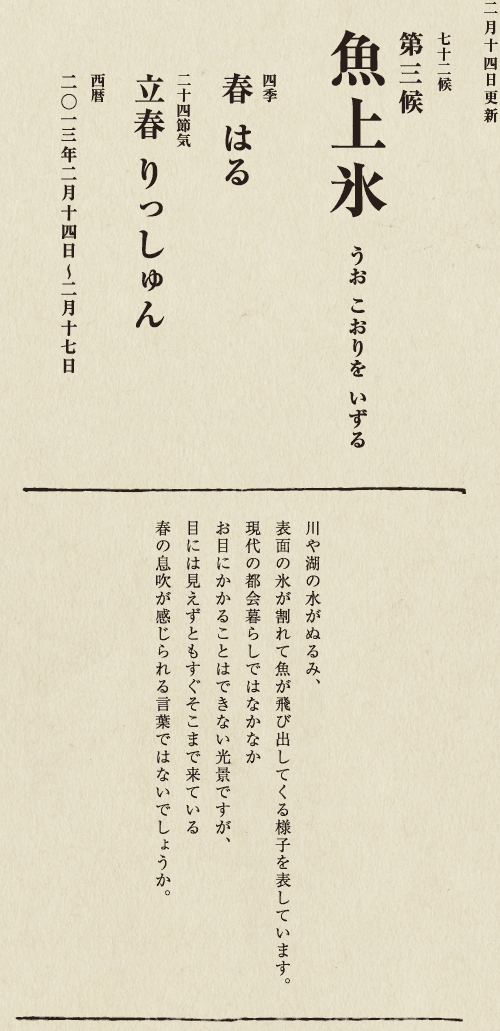 二月十四日更新
七十二候
第三候
魚上氷 うお こおりを いずる
四季
春 はる
二十四節気
立春 りっしゅん
西暦
二〇一三年二月十四日〜二月十七日
川や湖の水がぬるみ、
表面の氷が割れて魚が飛び出してくる様子を表しています。
現代の都会暮らしではなかなか
お目にかかることはできない光景ですが、
目には見えずともすぐそこまで来ている
春の息吹が感じられる言葉ではないでしょうか。